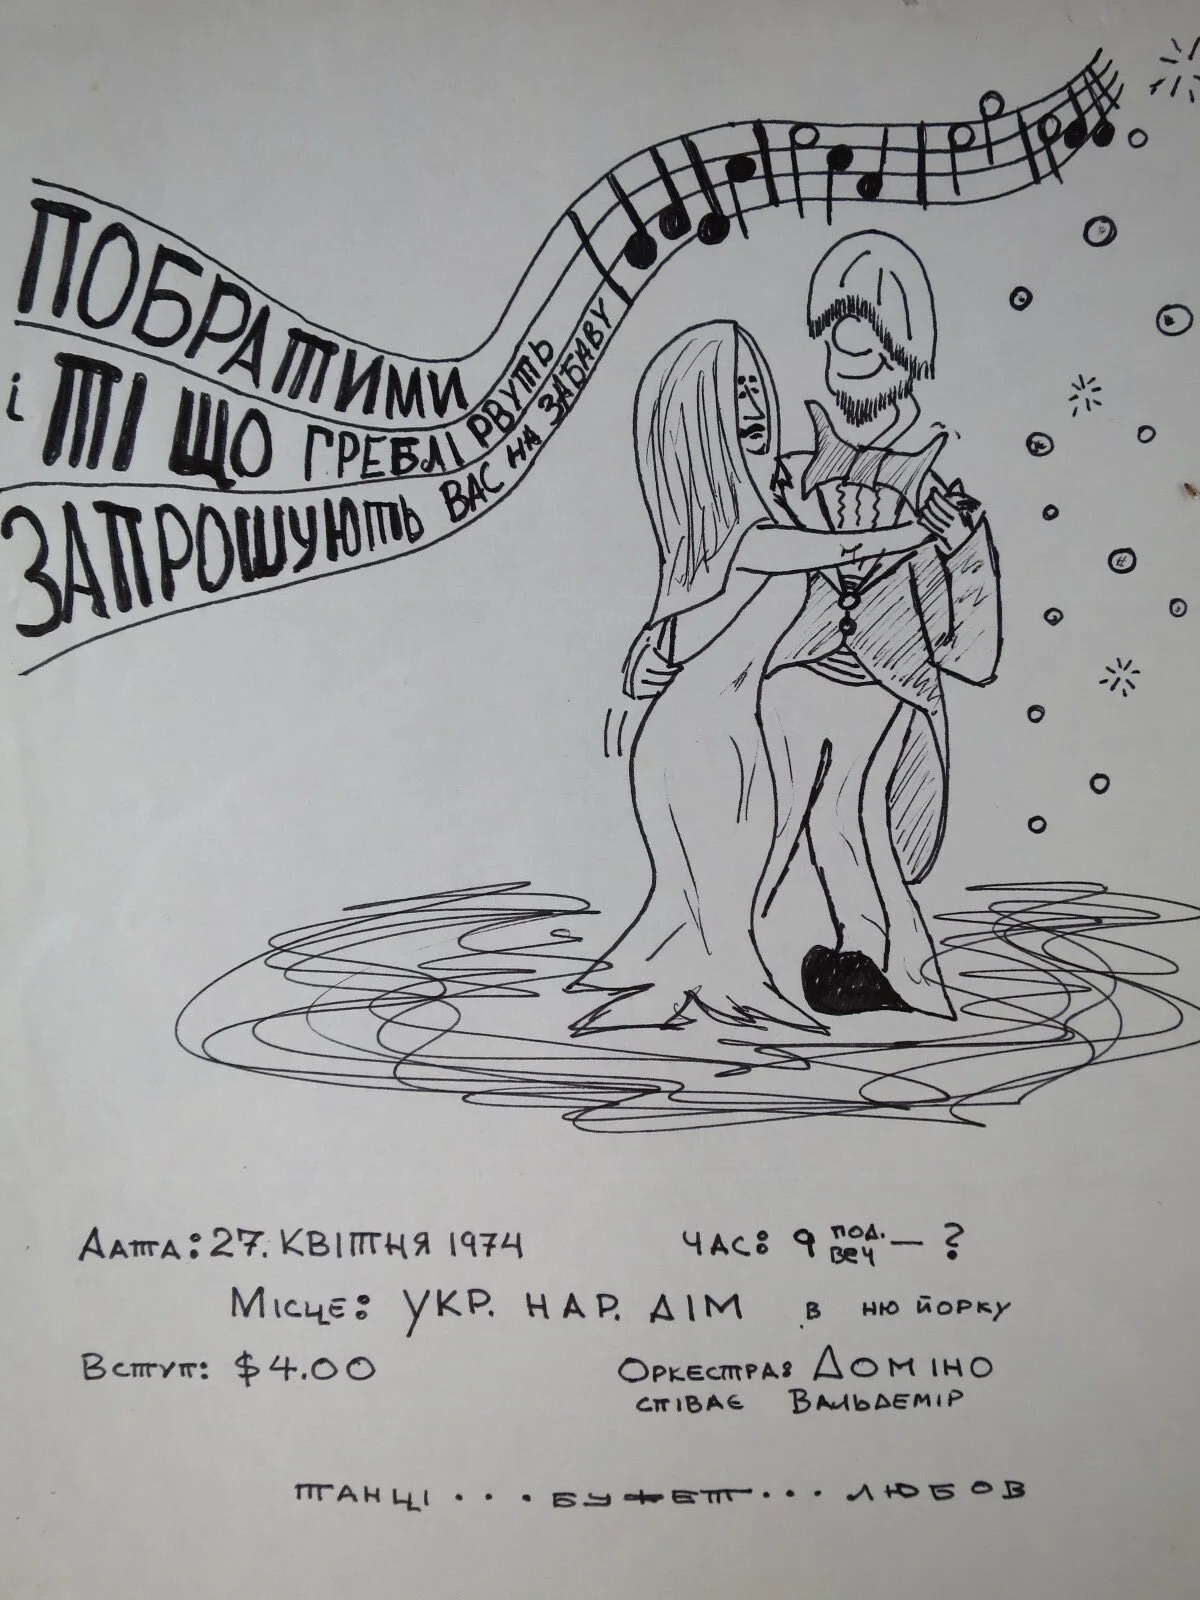 ПОБРАТИМИ
і ТІ ЩО ГРЕБЛІ РВУТЬ
ЗАПРОШУЮТЬ ВАС НА ЗАБАВУ
ДАТА: 27. КВІТНЯ 1974
ЧАС: 9 ПОД. ВЕЧ — ?
МІСЦЕ: УКР. НАР. ДІМ В НЮ ЙОРКУ
ВСТУП: $4.00
ОРКЕСТРА: ДОМІНО
СПІВАЄ ВАЛЬДЕМІР
ТАНЦІ . . . БУФЕТ . . . ЛЮБОВ